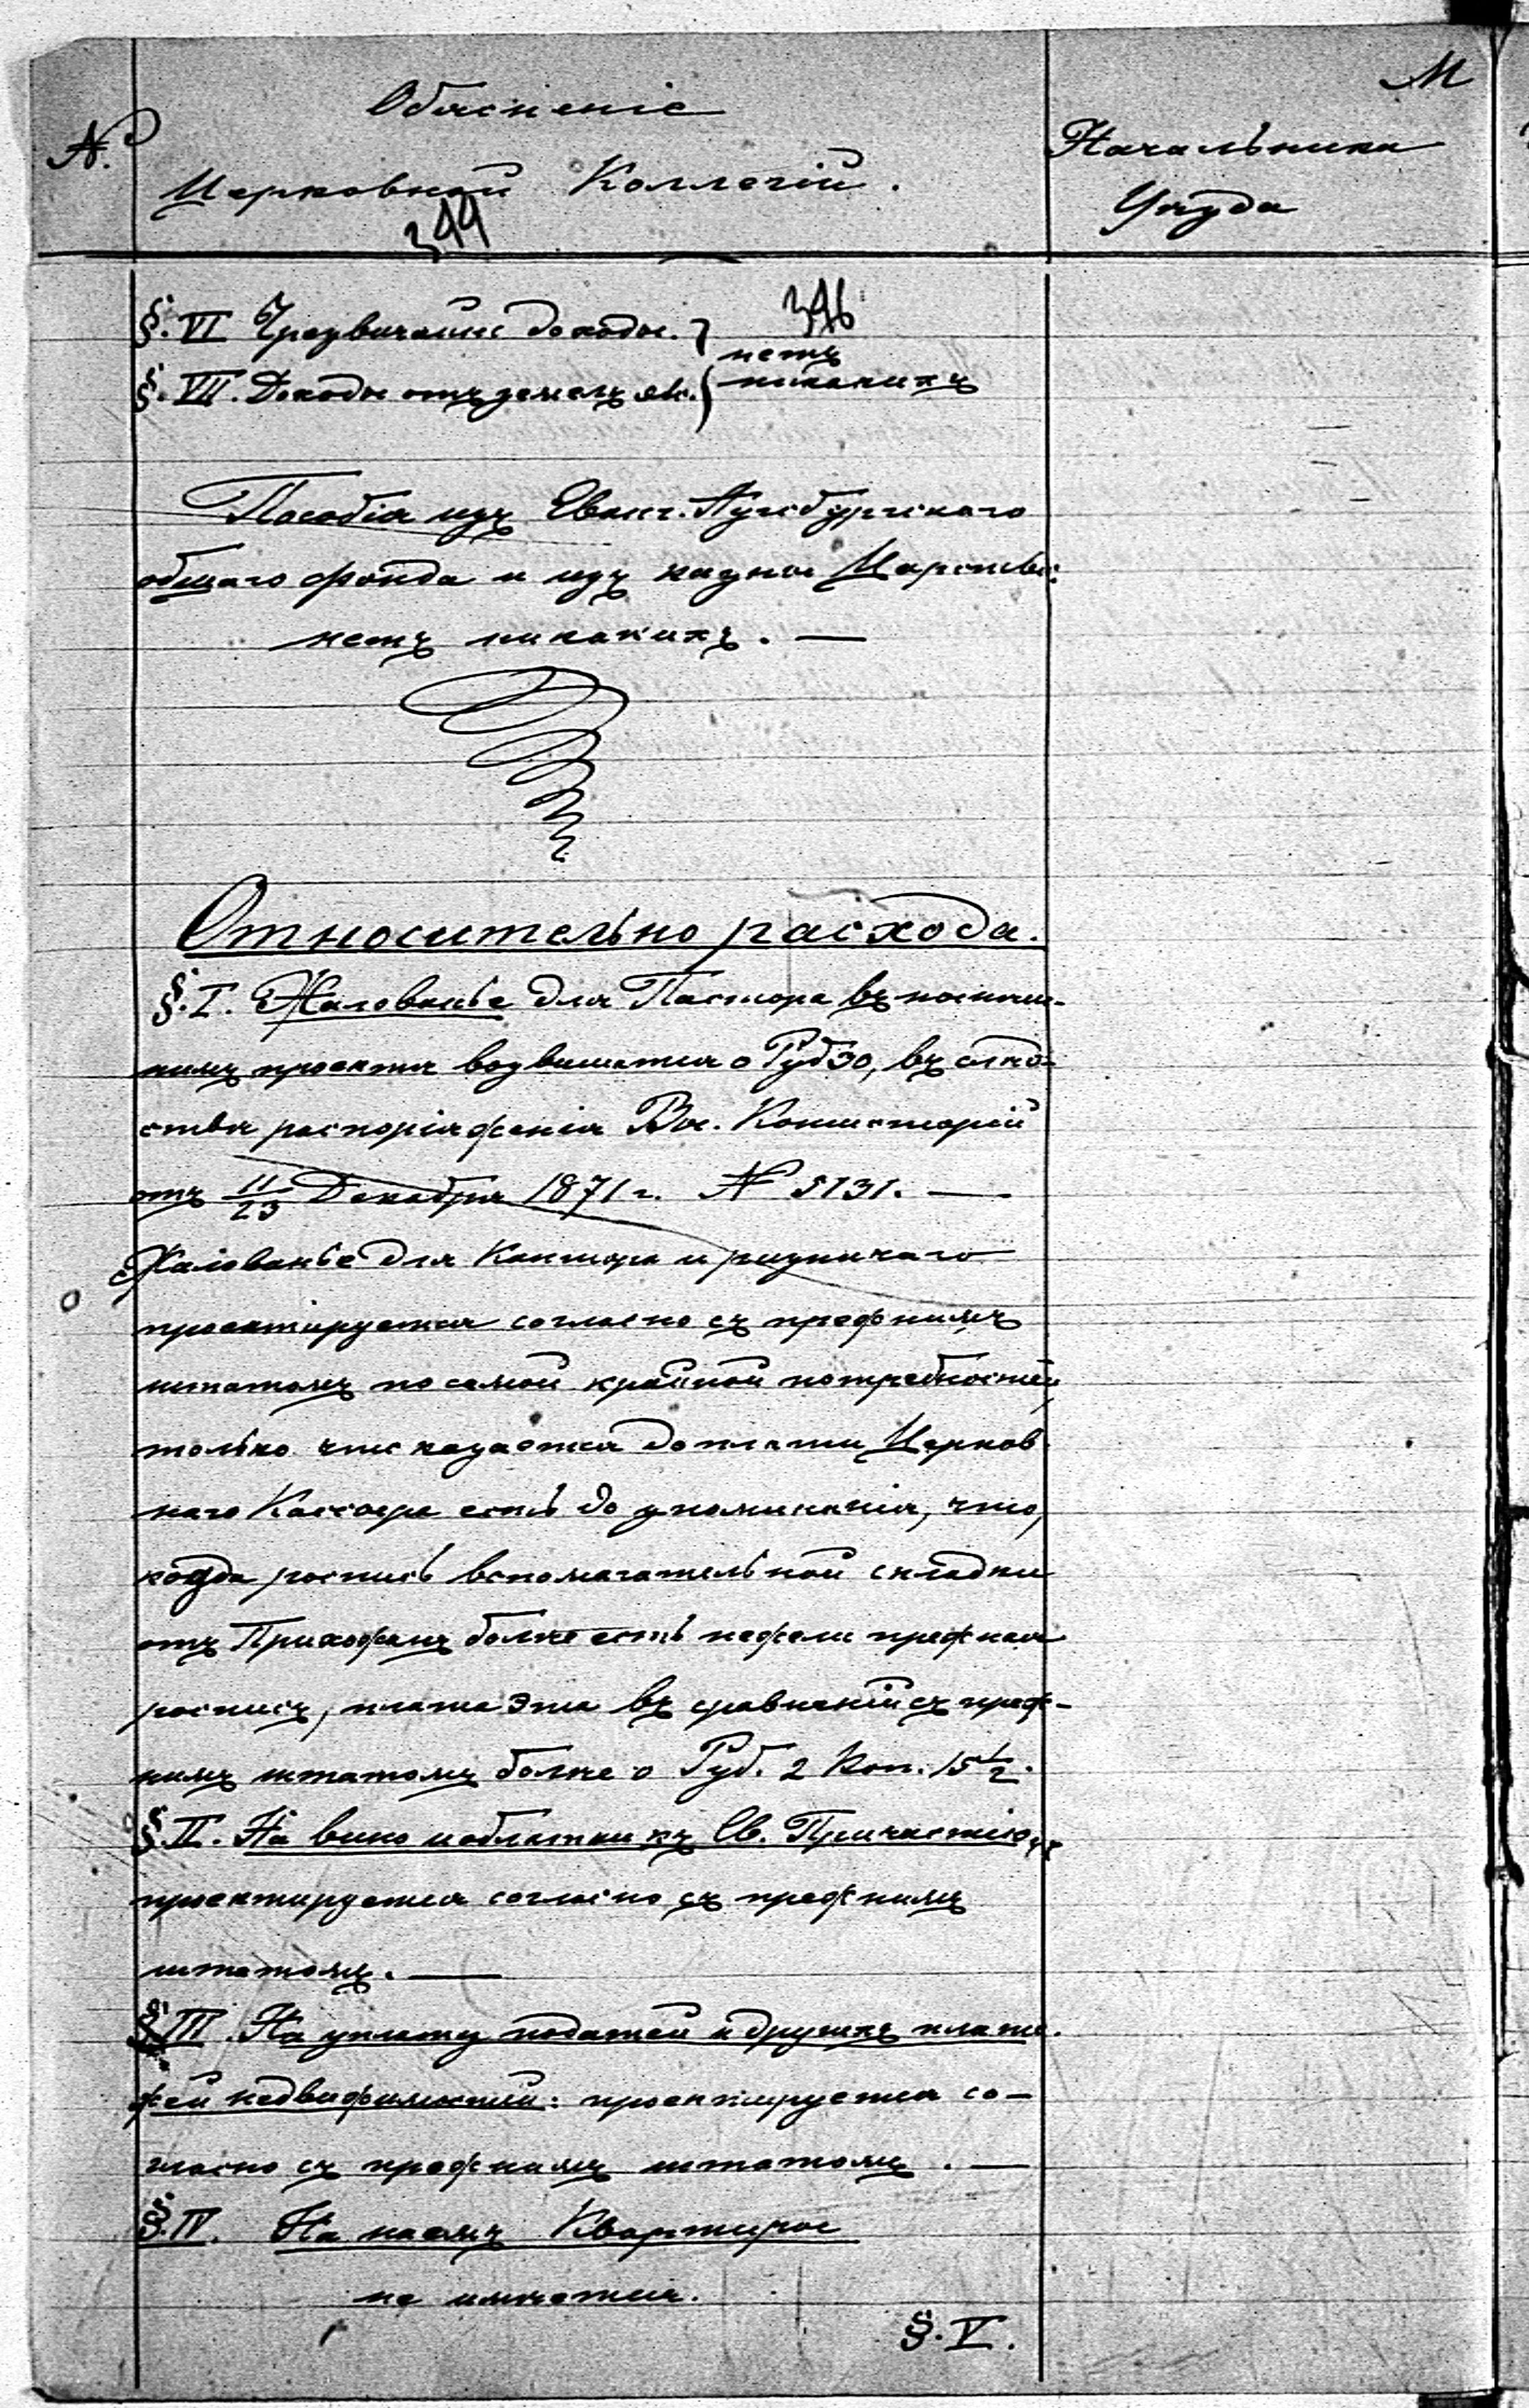 М
Объясненіе
№.
Церковной Коллегіи.
Начальника
Уѣзда
344
§. VI Чрезвычайне доходы.
346
§. VII. Доходы отъ земель
нетъ
никакихъ
Пособія изъ Еванг. Аугсбургскаго
общаго фонда и изъ казны Царства:
нетъ никакихъ. —
Относительно расхода.
§. I. Жалованье для Пастора въ
нимъ проекта возвышается о Руб 30, въ
ства распоріаженія Ев. Консисторіи
отъ 11/23 Декабря 1871 г. № 5131. —
Жалованье для Кантора и ризничаго
проектируется согласно съ прежнимъ
штатомъ по самой крайной потребностей,
только что казается до платы Церков
наго Кассера есть до упоминанія, что,
когда роспись вспомагательной складки
отъ Прихожанъ болѣе есть нежели прежная
росписъ, плата эта въ сравненіи съ преж-
нимъ штатомъ болѣе о Руб. 2 Коп. 15 1/2.
§. II. На вино и облатки къ Св. Причастію
проектируется согласно съ прежнимъ
штатомъ. —
§ III. На уплату податей и другихъ плате.
жей недвижимостей: проектируется со-
гласно съ прежнимъ штатомъ. —
§. IV. На наемъ Квартиры
не имѣется.
§. V.